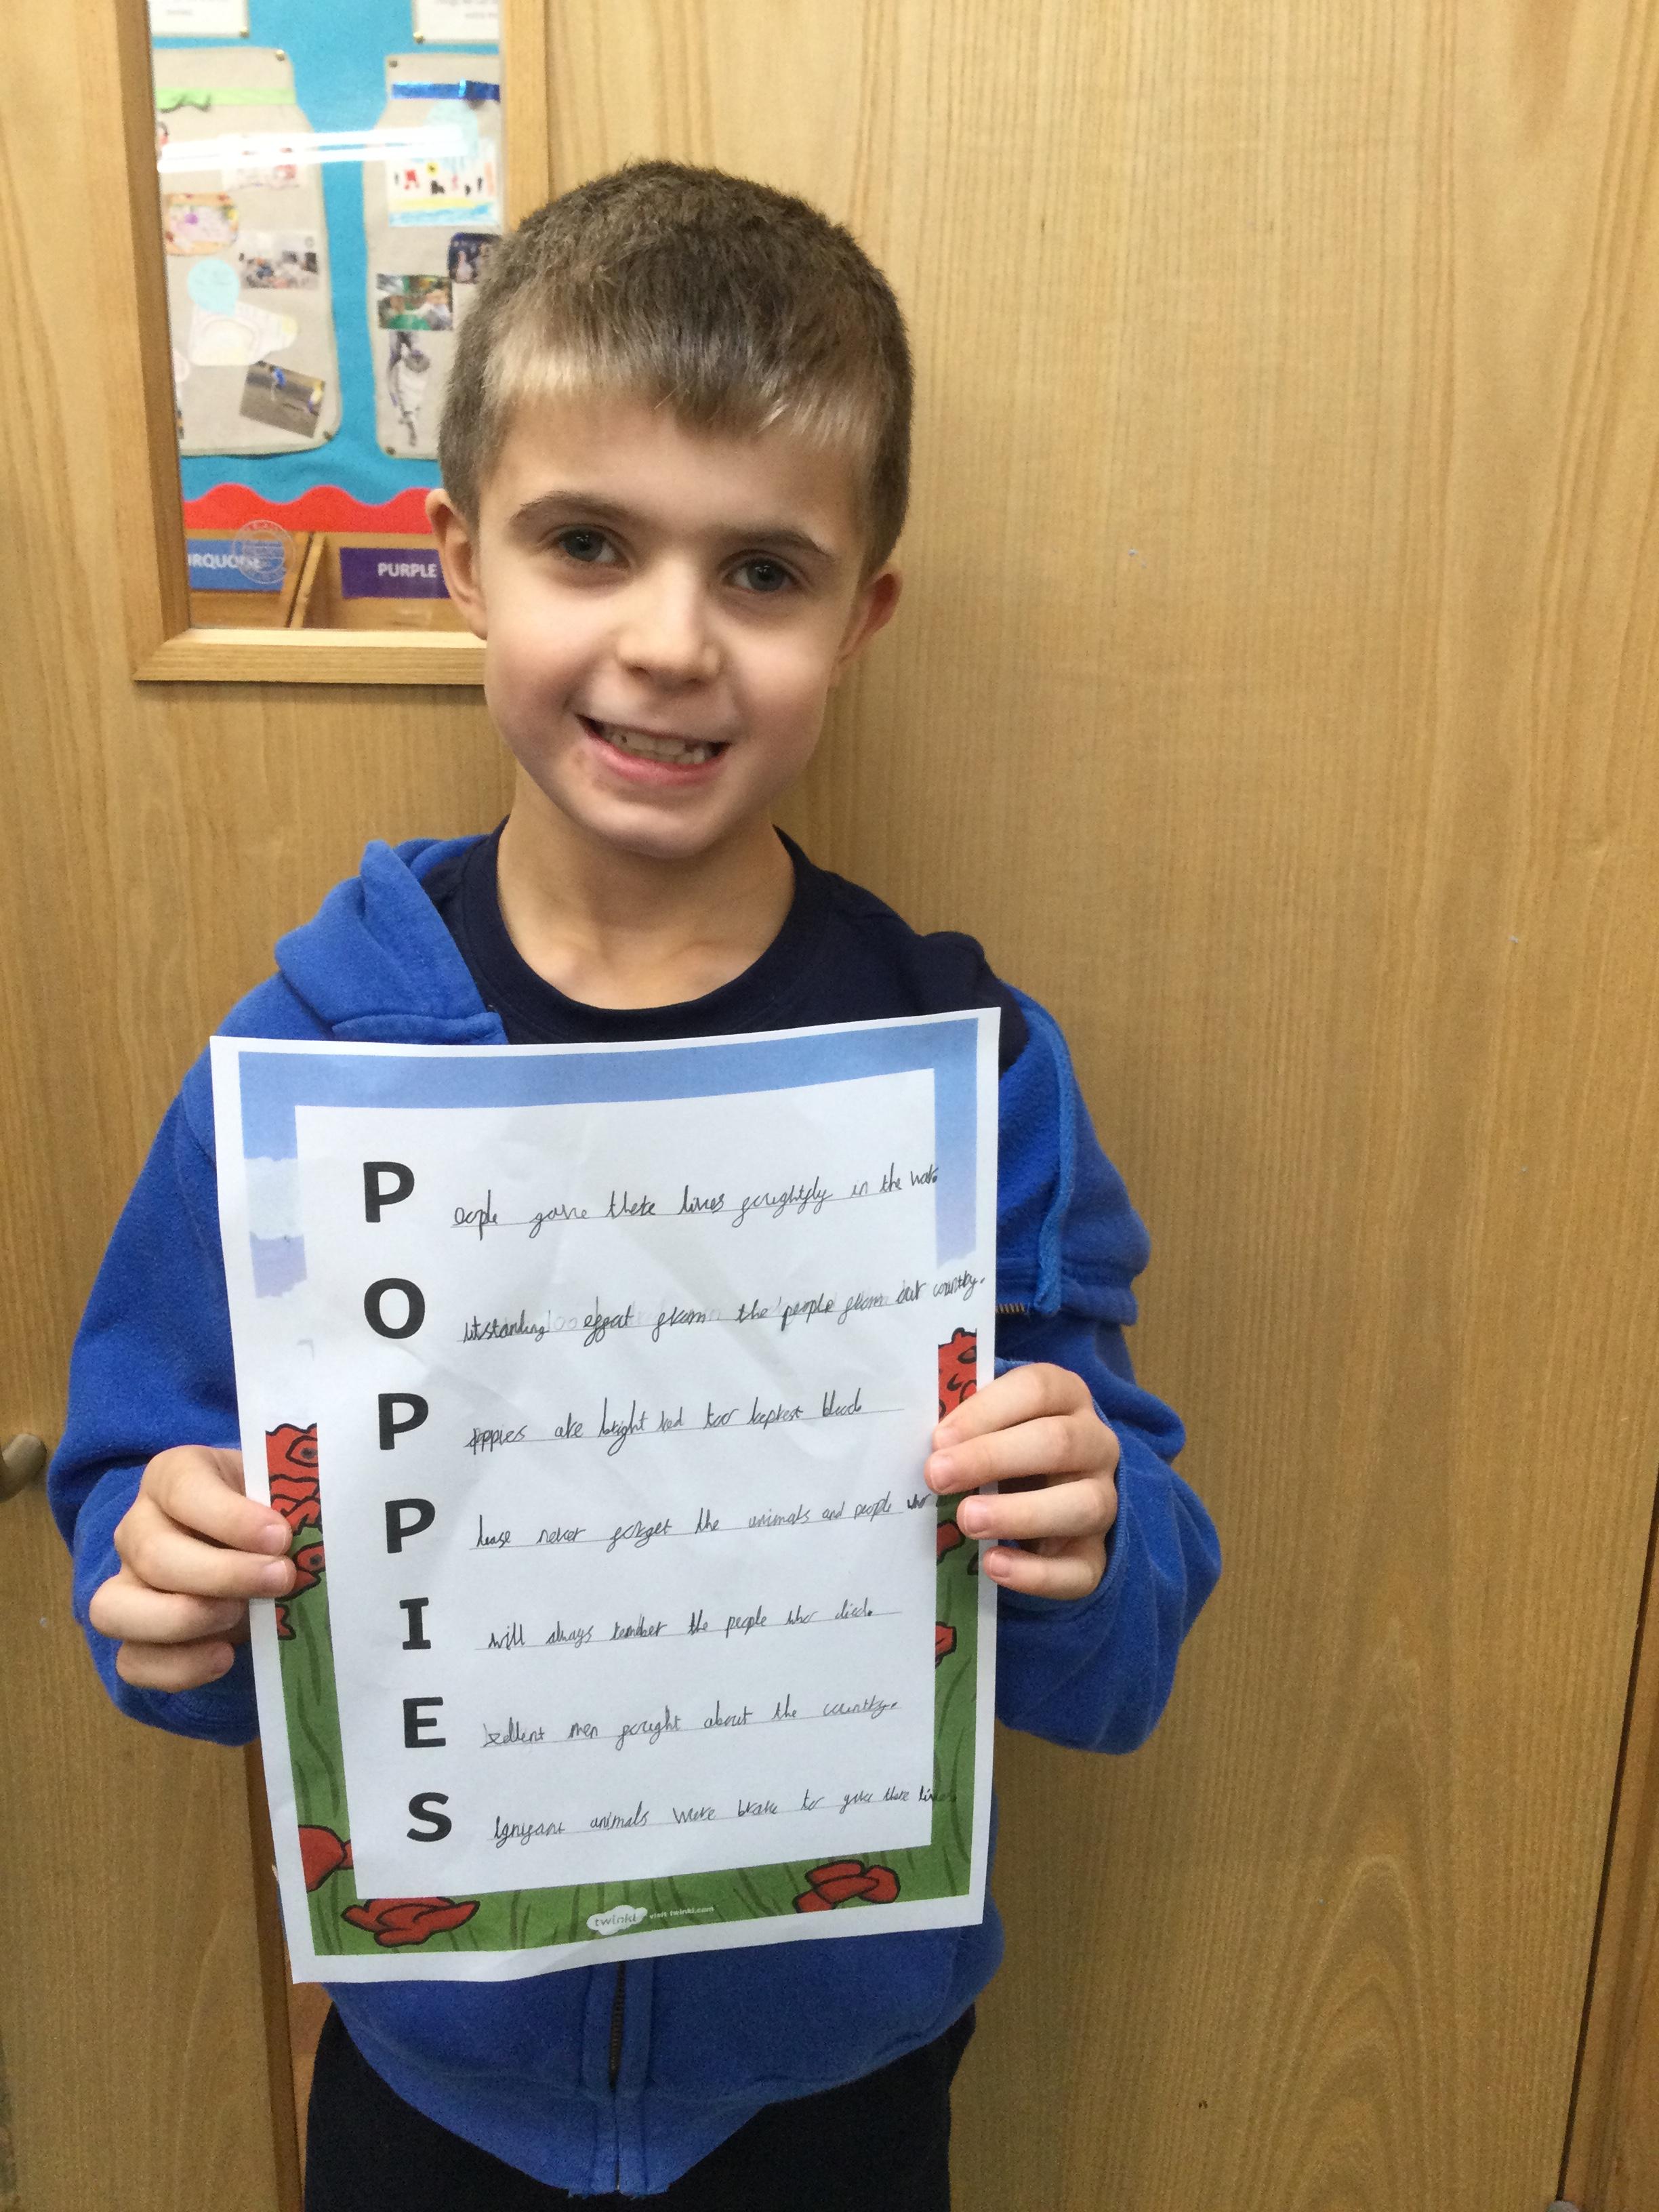 RQUOISE
PURPLE
P eople gave there lives foughtfly in the war.
O utstanding effat from the people from our country.
P oppies are bright red too
P lease never forget the animals and people who
I will always the people who died.
E xellent men fought about the country.
S ignifant animals were brave to gave there lives.
twinkl visit twinkl.com